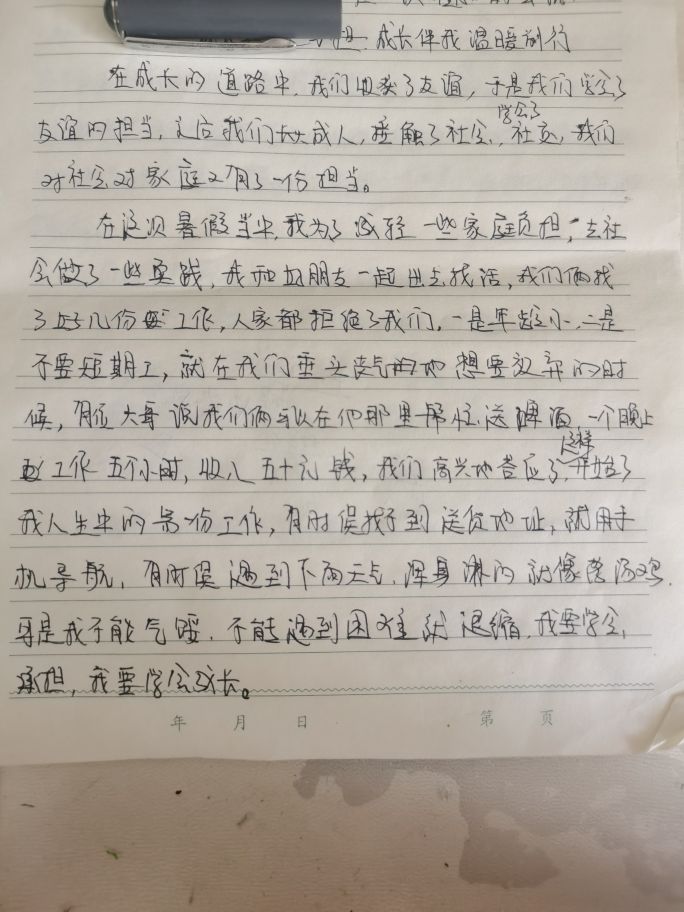 担 成长伴我温暖前行
在成长的道路中,我们收获了友谊,于是我们学会了
友谊的担当,之后我们长大成人,接触了社会,学会了社交,我们
对社会对家庭又有了一份担当。
在这次暑假当中,我为了减轻一些家庭负担,去社
会做了一些实践,我和我朋友一起出去找活,我们俩找
了好几份工作,人家都拒绝了我们,一是年龄小,二是
不要短期工,就在我们垂头丧气的地想要放弃的时
候,有位大哥说我们俩可以在他那里帮忙送啤酒,一个晚上
工作五个小时,收入五十元钱,我们高兴地答应了,这样开始了
我人生中的第一份工作,有时候找不到送货地址,就用手
机导航,有时候遇到下雨天气,浑身淋的就像落汤鸡,
可是我不能气馁,不能遇到困难就退缩,我要学会
承担,我要学会成长。
年 月 日 第 页